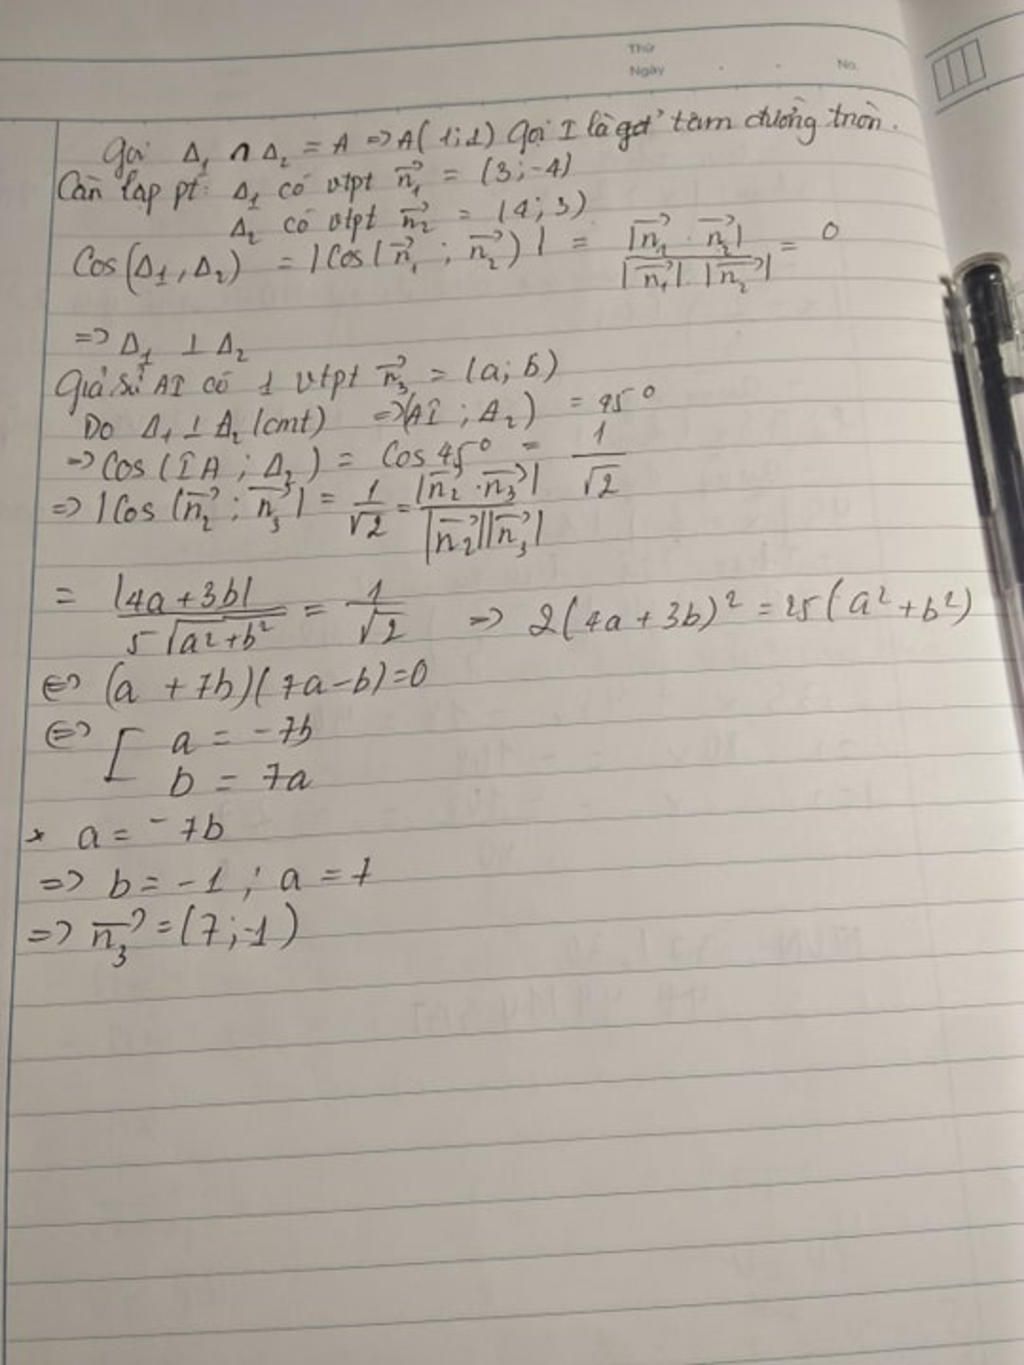 Thứ
Ngày
No.
Gọi Δ₁ ∩ Δ₂ = A => A(1;1) Gọi I là tâm đường tròn.
Cần lập pt: Δ₁ có vtpt n₁→ = (3;-4)
Δ₂ có vtpt n₂→ = (4;3)
Cos(Δ₁,Δ₂) = |Cos(n₁→ ; n₂→)| = |n₁→ . n₂→| / |n₁→|.|n₂→| = 0
=> Δ₁ ⊥ Δ₂
Giả sử AI có 1 vtpt n₃→ = (a; b)
Do Δ₁ ⊥ Δ₂ (cmt) => (AI ; Δ₂) = 45°
=> Cos (IA ; Δ₂) = Cos 45° = 1/√2
=> |Cos (n₂→ ; n₃→)| = 1/√2 = |n₂→ . n₃→| / |n₂→||n₃→|
= |4a+3b| / 5√(a²+b²) = 1/√2 => 2(4a+3b)² = 25(a²+b²)
<=> (a + 7b)(7a-b)=0
<=> [ a = -7b
b = 7a
* a = -7b
=> b = -1 ; a = 7
=> n₃→ = (7;-1)